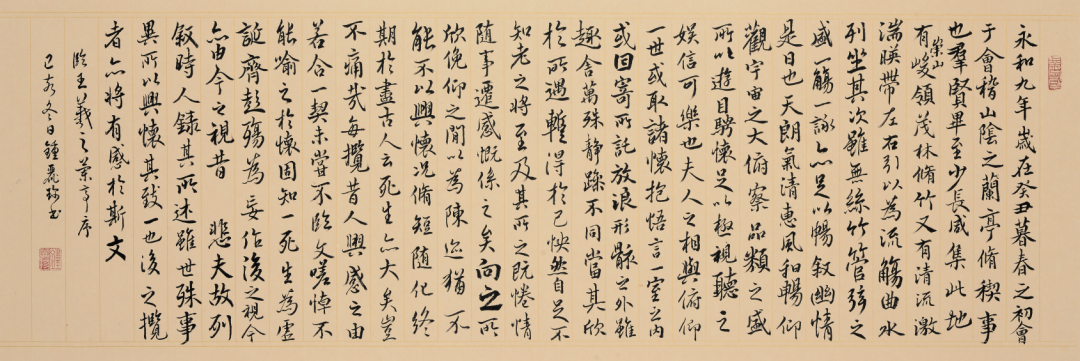 永和九年歲在癸丑暮春之初會
于會稽山陰之蘭亭脩禊事
也羣賢畢至少長咸集此地
有崇山峻領茂林脩竹又有清流激
湍暎帶左右引以為流觴曲水
列坐其次雖無絲竹管弦之
盛一觴一詠亦足以暢叙幽情
是日也天朗氣清惠風和暢仰
觀宇宙之大俯察品類之盛
所以遊目騁懷足以極視聽之
娛信可樂也夫人之相與俯仰
一世或取諸懷抱悟言一室之內
或因寄所託放浪形骸之外雖
趣舍萬殊静躁不同當其欣
於所遇暫得於己怏然自足不
知老之將至及其所之既惓情
隨事遷感慨係之矣向之所
欣俛仰之閒以為陳迹猶不
能不以興懷況脩短隨化終
期於盡古人云死生亦大矣豈
不痛哉每攬昔人興感之由
若合一契未嘗不臨文嗟悼不
能喻之於懷固知一死生為虛
誕齊彭殤為妄作後之視今
亦由今之視昔 悲夫故列
叙時人錄其所述雖世殊事
異所以興懷其致一也後之攬
者亦將有感於斯文
臨王羲之蘭亭序
己亥冬日鍾書